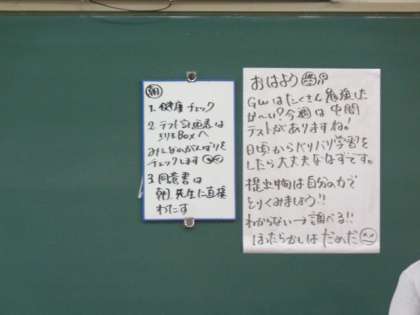 朝
1. 健康チェック
2. テスト計画表は
BOXへ
みんなのがんばりを
チェックします
3. 同意書は
朝、先生に直接
わたす
おはよう
GWはたくさん勉強した
か〜い？今週は中間
テストがありますね！
日頃からバリバリ学習を
したら大丈夫なはずです。
提出物は自分の力で
とりくみましょう!!
わからない→調べる!!
ほったらかしはだめだ